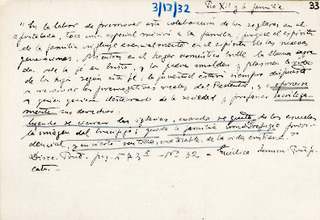 3/17/32 Pio XII y la familia 33
"En la labor de promover esta colaboración de los seglares en el
apostolado, toca muy especial misión a la familia, porque el espíritu
de la familia influye esencialmente en el espíritu de las nuevas
generaciones. Mientras en el hogar doméstico brille la llama sagra-
da de la fe en Cristo, y los padres moldeen y plasmen la vida
de los hijos según esta fe, la juventud estará siempre dispuesta
a reconocer las prerrogativas reales del Redentor, y a oponerse
a quien quiera desterrarlo de la sociedad y profanar
sus derechos.
Cuando se cierran las iglesias, cuando se quita de las escuelas
la imagen del crucifijo, queda la familia como refugio provi-
dencial, y en cierto sentido, inatacable, de la vida cristiana."
Disc. Pont. pag. nº 32 - Encíclica Summi Ponti-
catus.